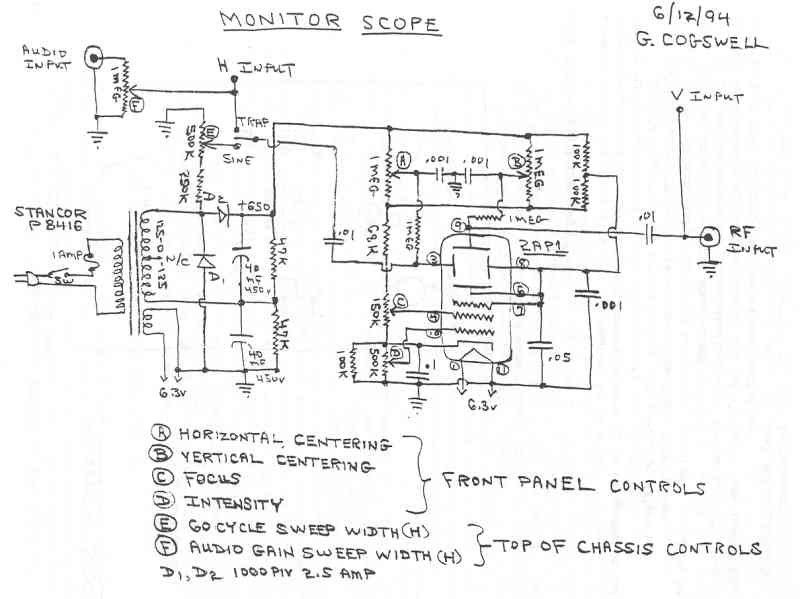 MONITOR SCOPE
6/12/94
G. COGSWELL
AUDIO
INPUT
1 MEG
F
H INPUT
V INPUT
TRAP
SINE
E
500K
250K
+650
STANCOR
P8416
1 AMP
SW
N/C
40
MF
450V
47K
40
MF
450V
47K
6.3V
.01
A
1 MEG
.001
.001
B
1 MEG
100K
100K
1 MEG
1 MEG
68K
2AP1
9
8
6
7
C
150K
D
500K
100K
.1
.05
.001
.01
RF
INPUT
6.3V
A HORIZONTAL CENTERING
B VERTICAL CENTERING
C FOCUS
D INTENSITY
FRONT PANEL CONTROLS
E 60 CYCLE SWEEP WIDTH (H)
F AUDIO GAIN SWEEP WIDTH (H)
TOP OF CHASSIS CONTROLS
D1, D2 1000 PIV 2.5 AMP